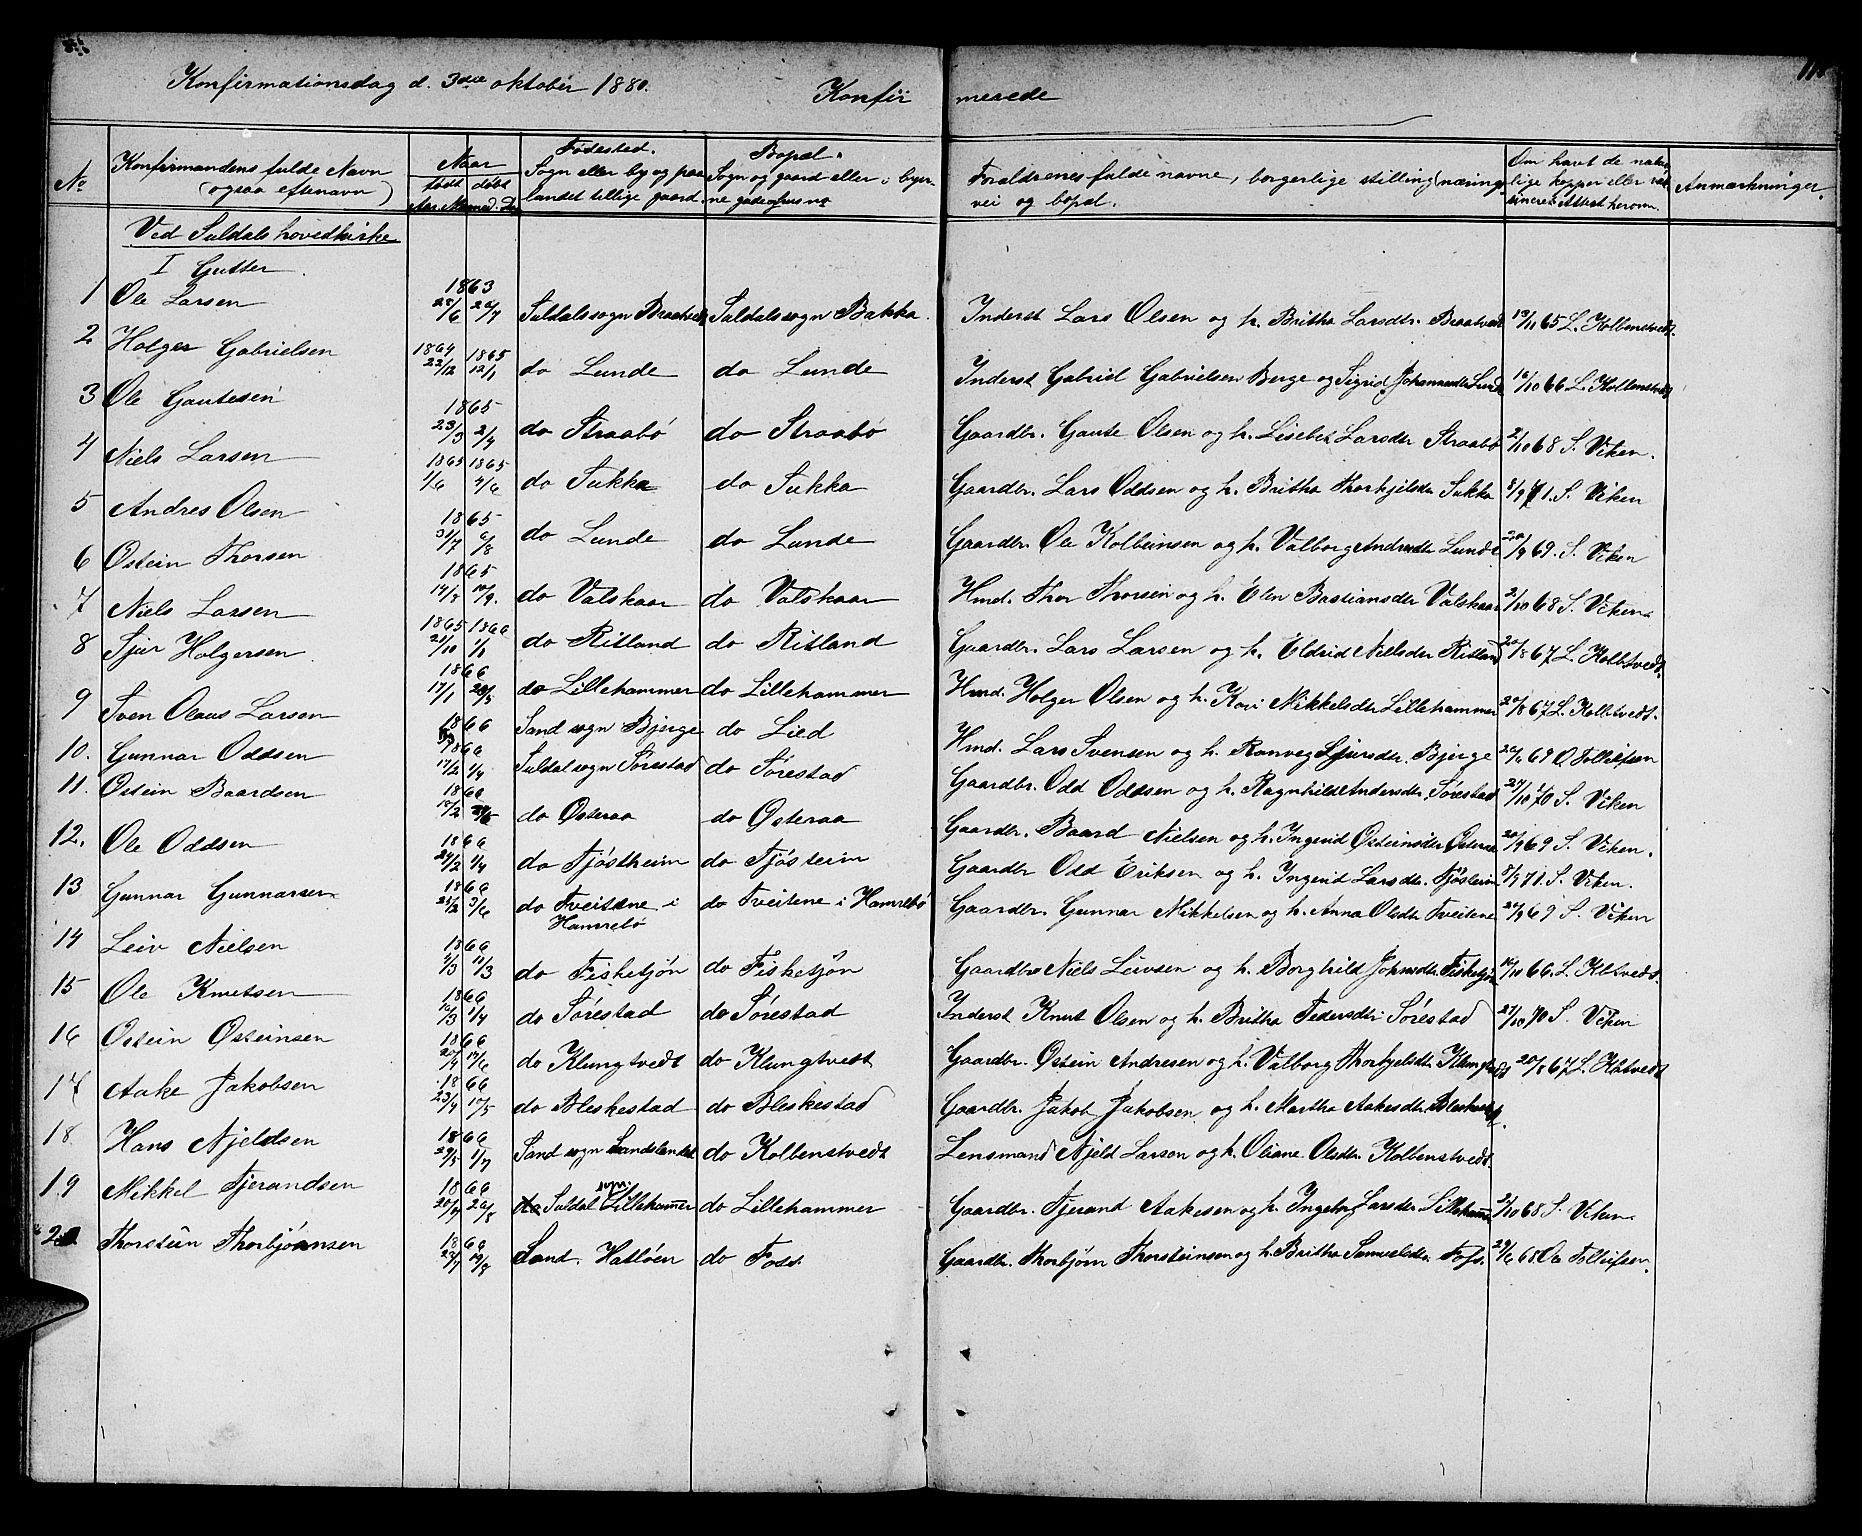 Konfirmationsdag d. 3die oktober 1880. Konfir merede
No Konfirmandens fulde Navn (ogsaa efternavn) Naar født døbt Fødested. Sogn eller by og paa landet tillige gaard. Bopæl. Sogn og gaard eller i byerne gade Forældrenes fulde navne, borgerlige stilling (næringsvei og bopæl. Om havt de naturlige kopper eller Anmærkninger.
Ved Suldals hovedkirke
I Gutter.
1 Ole Larsen 1863 25/6 Suldals sogn Suldals sogn Bakka. Inderst Lars Olsen og h. Britha Larsdtr. 65 L. Kolbenstvedt.
2 Holger Gabrielsen 1864 22/12 1865 12/1 do Lunde do Lunde Inderst Gabriel Gabrielsen Berge og Sigrid Lunde 66 L. Kolbenstvedt
3 Ole Gautesen 1865 23/3 2/4 do Straabø do Straabø Gaardbr. Gaute Olsen og h. Lisebet Larsdtr Straabø 2/10 68 S. Viken.
4 Niels Larsen 1865 1/6 1865 4/6 do Sukka do Sukka Gaardbr. Lars Oddsen og h. Britha Thorkjelsdtr Sukka 8/9 71. S. Viken
5 Andres Olsen 1865 31/7 6/8 do Lunde do Lunde Gaardbr. Ole Kolbeinsen og h. Valborg Andresdtr Lunde 20/9 69. S. Viken
6 Østein Thorsen 1865 10/9. do Valskaar do Valskaar Hmd. Thor Thorsen og h. Elen Bastiansdtr Valskaar 2/10 68 S. Viken
7 Niels Larsen 1865 21/10 1866 1/1 do Ritland do Ritland Gaardbr. Lars Larsen og h. Eldrid Nielsdtr Ritland 20/8 67 L. Kolbtvedt.
8 Sjur Holgersen 1866 17/1 do Lillehammer do Lillehammer Hmd. Holger Olsen og h. Kari Mikkelsdtr Lillehammer 20/8 67 L. Kolbtvedt.
9 Sven Olaus Larsen 1866 Sand sogn Bjerge do Lied Hmd. Lars Svensen og h. Ranveg Sjursdtr. Bjerge 69 O. Folleifsen
10. Gunnar Oddsen 1866 17/2 1/4 Suldal sogn Sørestad do Sørestad Gaardbr. Odd Oddsen og h. Ragnhild Andersdtr. Sørestad 27/10 70 S. Viken
11. Østein Baardsen 1866 do Østeraa do Østeraa Gaardbr. Baard Nielsen og h. Ingerid Østeinsdtr Østeraa 20/9 69 S. Viken.
12. Ole Oddsen 1866 24/2 1/4 do Tjøstheim do Tjøsteim Gaardbr Odd Eriksen og h. Ingerid Larsdtr. Tjøsteim 8/9 71. S. Viken.
13 Gunnar Gunnarsen 1866 25/2 3/6 do Tveitene i Hamrebø do Tveitene i Hamrebø Gaardbr. Gunnar Mikkelsen og h. Anna Olsdtr Tveitene 69 S. Viken
14 Leiv Nielsen 1866 11/3 do Fisketjøn do Fisketjøn Gaardbr Niels Leivsen og h. Borghild Johnsdtr. Fisketjøn 66. L. Kbtvedt.
15 Ole Knutsen 1866 1/4 do Sørestad do Sørestad Inderst Knut Olsen og h. Britha Pedersdtr Sørestad 27/10 70 S. Viken
16 Østein Østeinsen 1866 20/4 17/6 do Klungtvedt do Klungtvedt Gaardbr. Østein Andresen og h. Valborg Thorkjelsdtr Klungtvedt 20/8 67 L. Kbtvedt
17 Aake Jakobsen 1866 23/4 10/5 do Bleskestad do Bleskestad Gaardbr. Jakob Jakobsen og h. Martha Aakesdtr. Bleskestad.
18. Hans Njeldsen 1866 29/5 1/7 Sand sogn do Kolbenstvedt Lensmand Njeld Larsen og h. Oliane Olsdtr Kolbenstvedt
19 Mikkel Tjerandsen 1866 26/8 Suldal sogn Lillehammer do Lillehammer Gaardbr. Tjerand Aakesen og h. Ingeborg Larsdtr Lillehammer 2/10 68 S. Viken
20 Thorstein Thorbjørnsen 1866 19/8 Sand. Hatløen do Foss. Gaardbr. Thorbjørn Thorsteinsen og h. Britha Samuelsdtr Foss. 68. Ole Folleifsen.